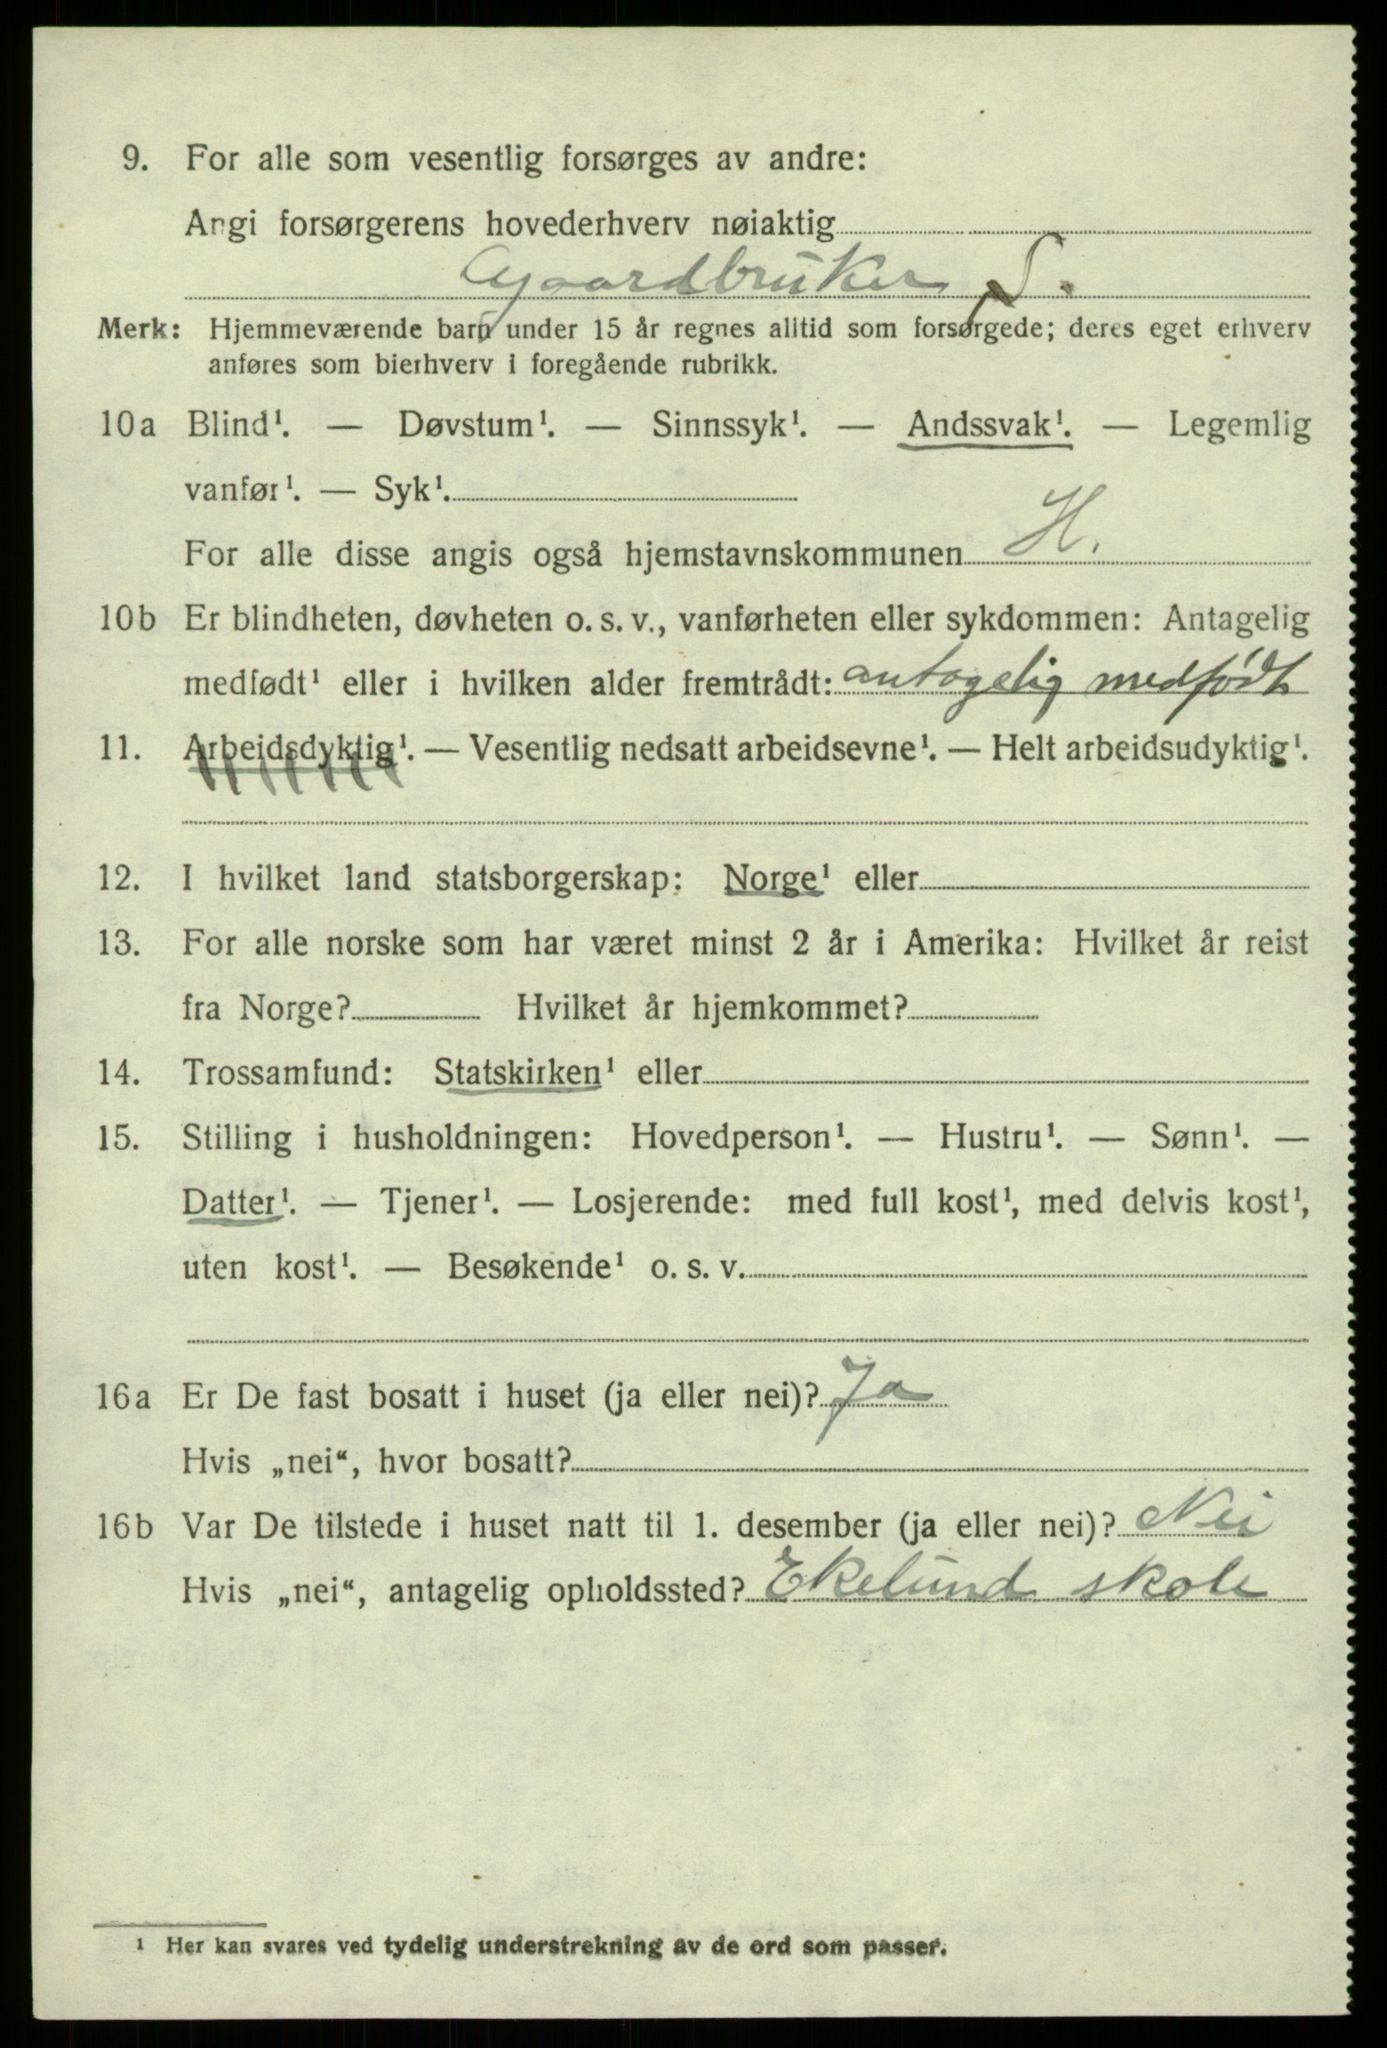 9. For alle som vesentlig forsørges av andre:
Angi forsørgerens hovederhverv nøiaktig
Gaardbruker S.
Merk: Hjemmeværende barn under 15 år regnes alltid som forsørgede; deres eget erhverv
anføres som bierhverv i foregående rubrikk.
10a Blind¹. — Døvstum¹. — Sinnssyk¹. — Andssvak¹. — Legemlig
vanfør¹. — Syk¹.
For alle disse angis også hjemstavnskommunen H.
10b Er blindheten, døvheten o. s. v., vanførheten eller sykdommen: Antagelig
medfødt¹ eller i hvilken alder fremtrådt: antagelig medfødt
11. Arbeidsdyktig¹. — Vesentlig nedsatt arbeidsevne¹. — Helt arbeidsudyktig¹.
12. I hvilket land statsborgerskap: Norge¹ eller
13. For alle norske som har været minst 2 år i Amerika: Hvilket år reist
fra Norge? Hvilket år hjemkommet?
14. Trossamfund: Statskirken¹ eller
15. Stilling i husholdningen: Hovedperson¹. — Hustru¹. — Sønn¹. —
Datter¹. — Tjener¹. — Losjerende: med full kost¹, med delvis kost¹,
uten kost¹. — Besøkende¹ o. s. v.
16a Er De fast bosatt i huset (ja eller nei)? Ja
Hvis „nei“, hvor bosatt?
16b Var De tilstede i huset natt til 1. desember (ja eller nei)? Nei
Hvis „nei“, antagelig opholdssted? Ekelund skole
¹ Her kan svares ved tydelig understrekning av de ord som passer.